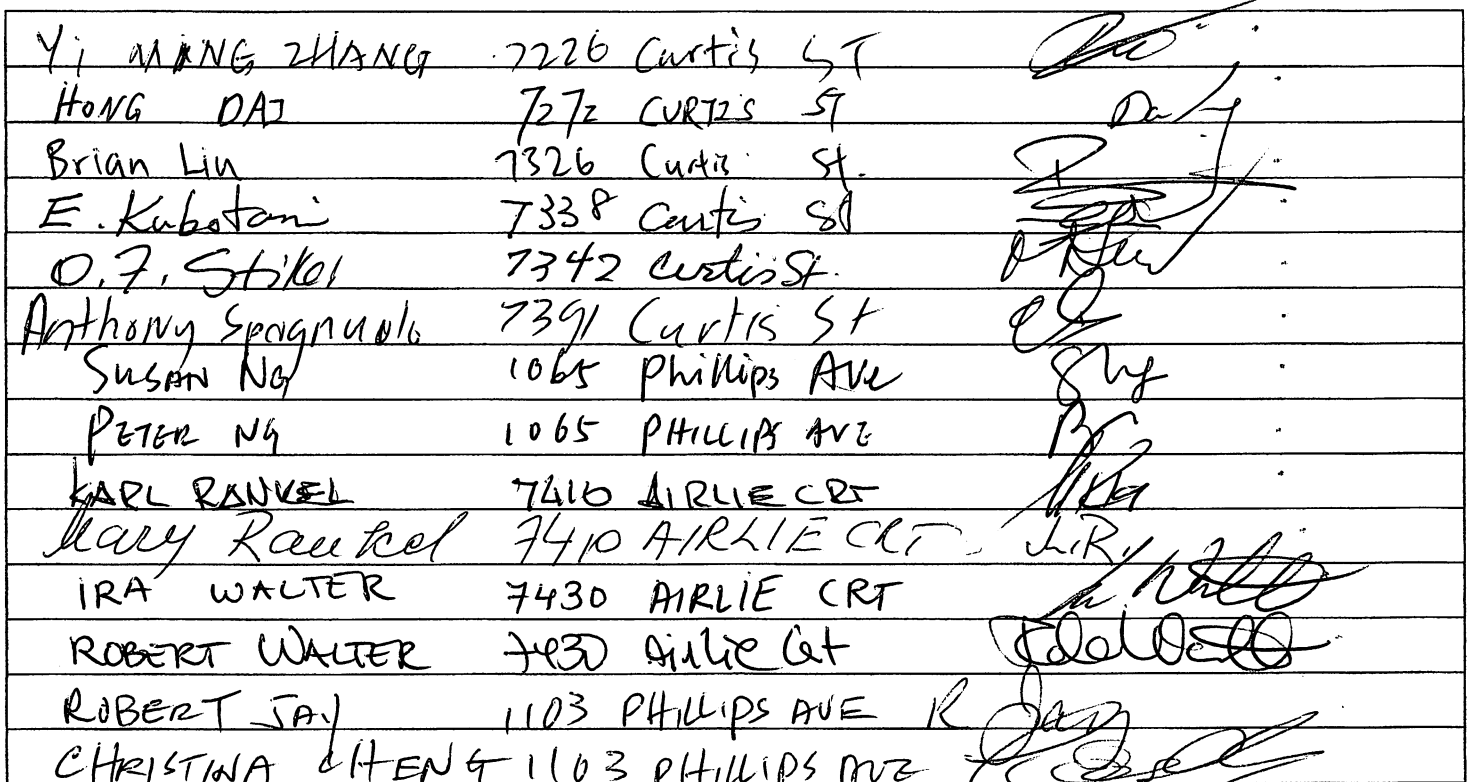 Yi MING ZHANG 7226 Curtis ST
HONG DAI 7272 CURTIS ST
Brian Liu 7326 Curtis St.
E. Kubotani 7338 Curtis St
O.F. Stiker 7342 Curtis St.
Anthony Spagnuolo 7391 Curtis St
SUSAN NG 1065 Phillips Ave
PETER NG 1065 PHILLIPS AVE
KARL RANKEL 7410 AIRLIE CRT
Mary Rankel 7410 AIRLIE CRT. M.R.
IRA WALTER 7430 AIRLIE CRT
ROBERT WALTER 7430 Airlie Crt
ROBERT JAY 1103 PHILLIPS AVE R Jay
CHRISTINA CHENG 1103 PHILLIPS AVE